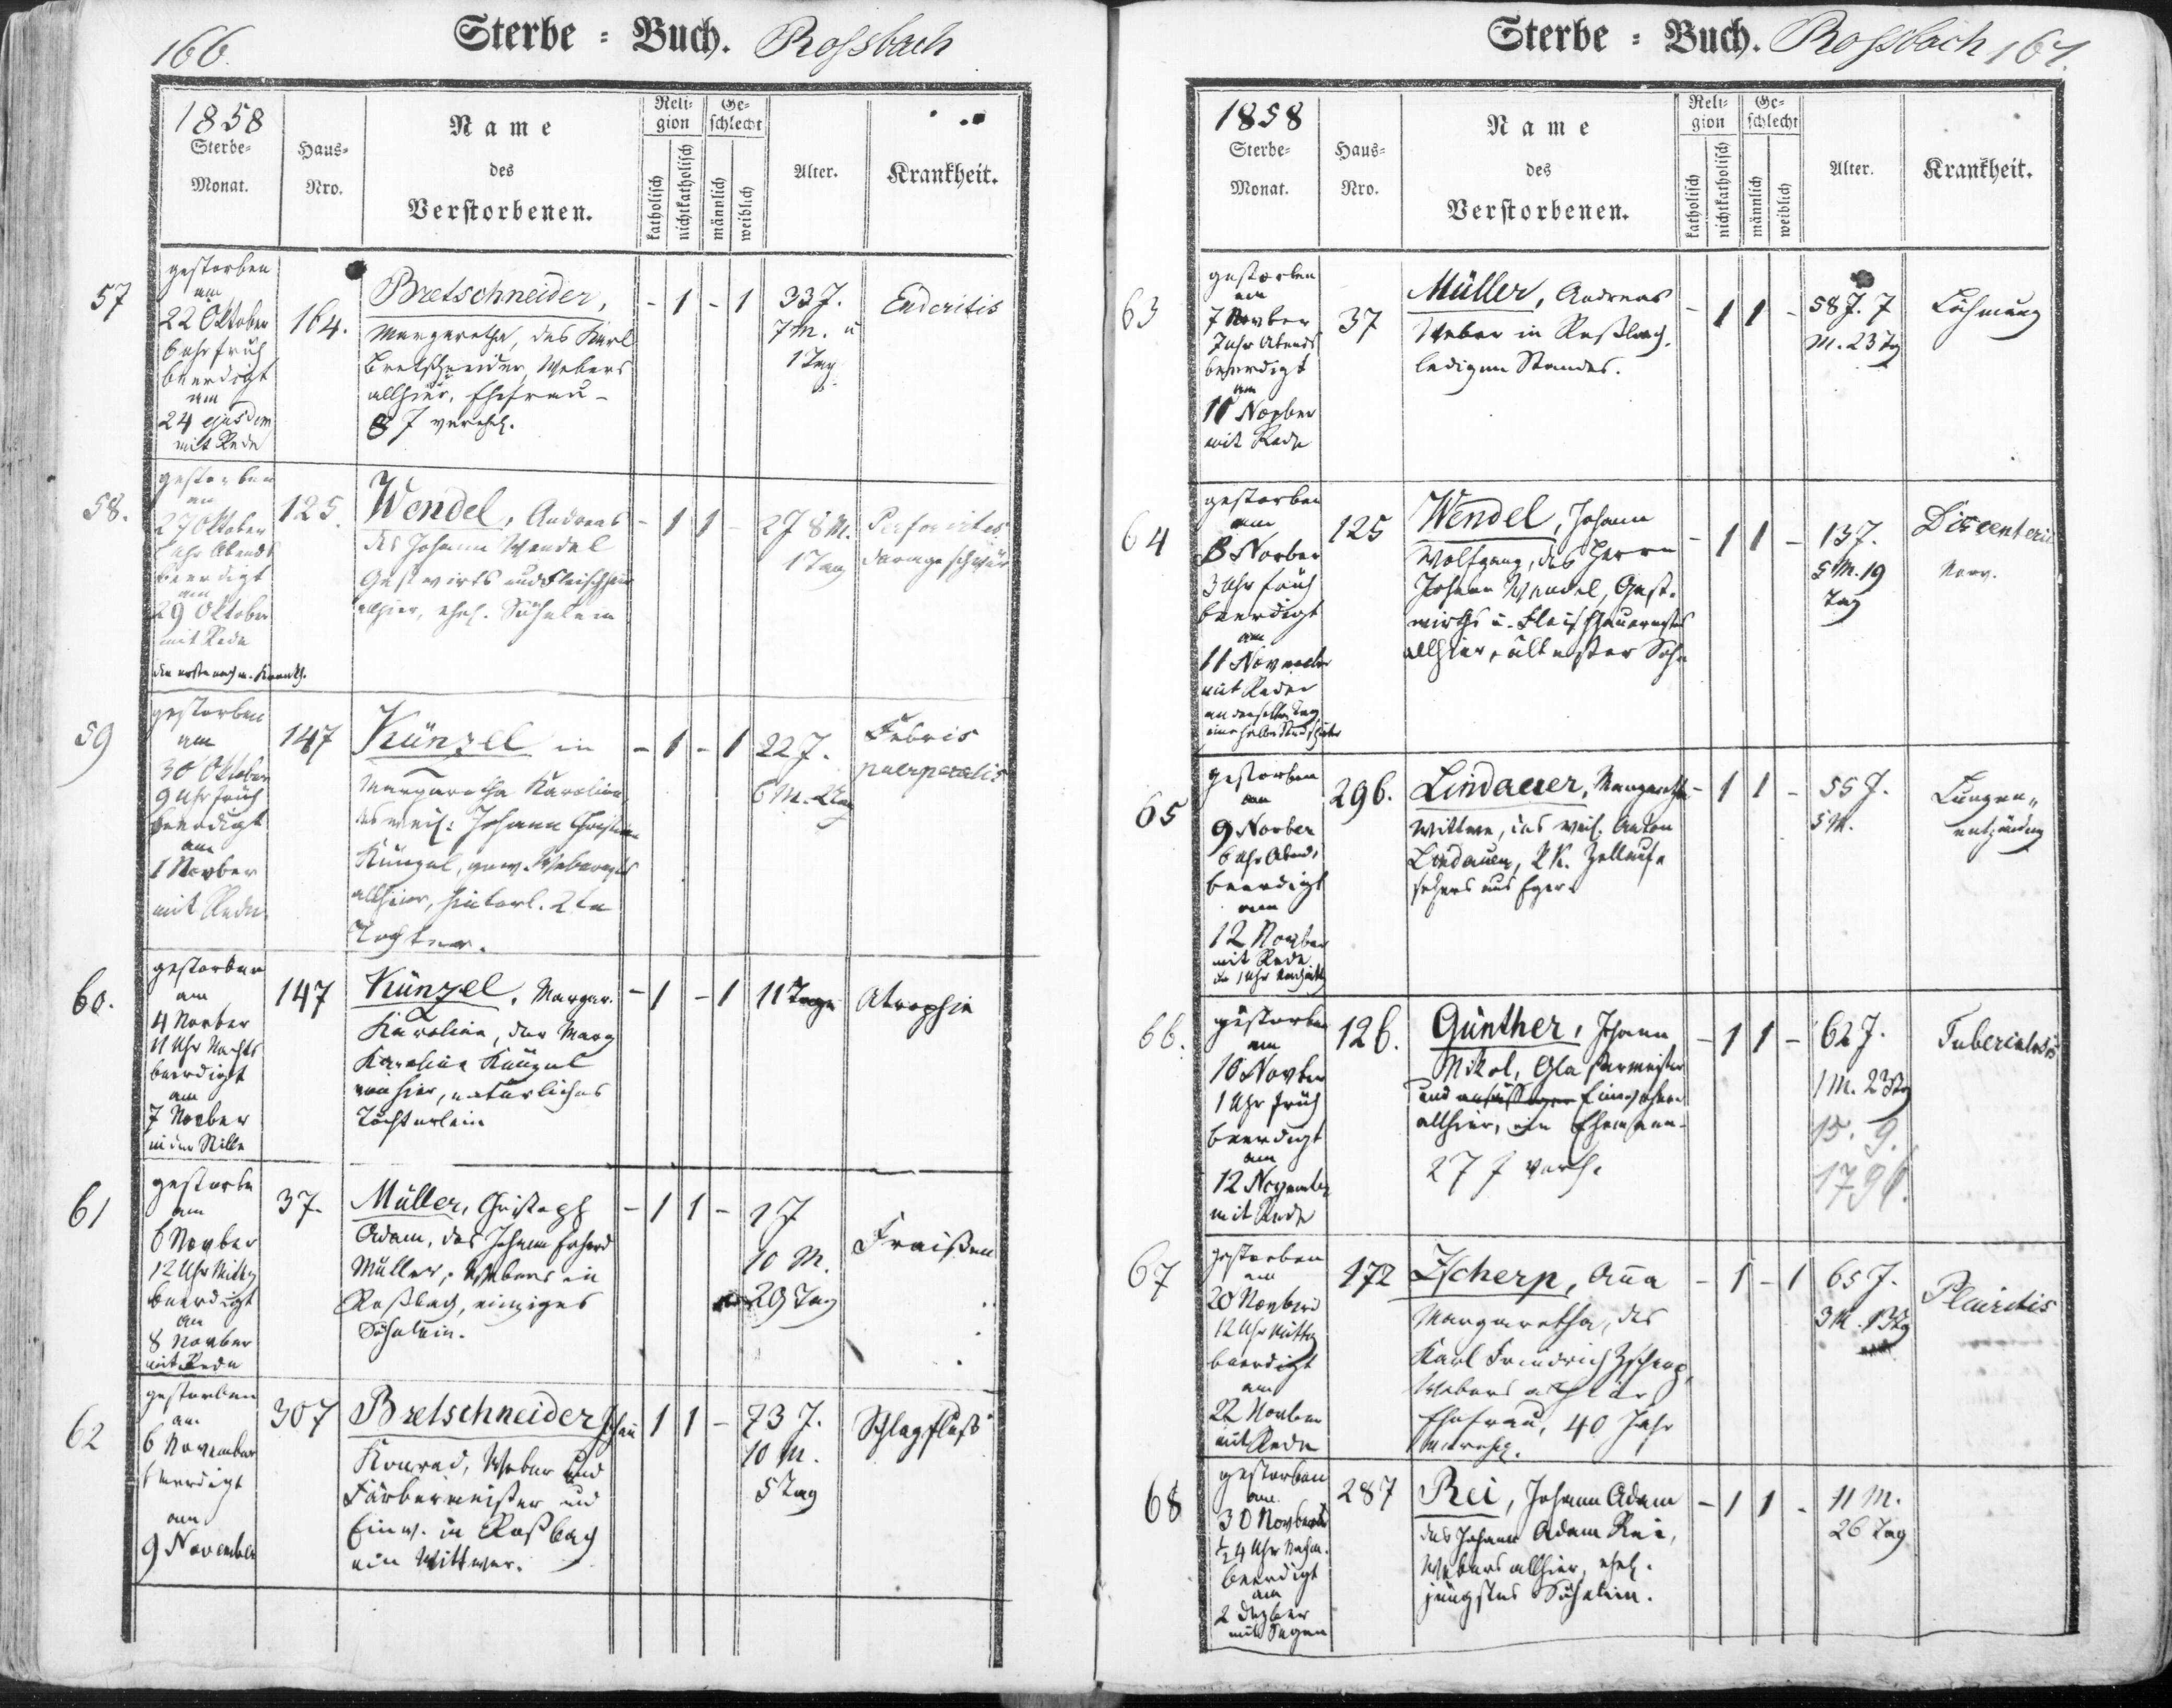 166.
Sterbe = Buch. Rossbach
1858
Sterbe-
Monat.
Haus-
Nro.
Name
des
Verstorbenen.
Reli-
gion
katholisch
nichtkatholisch
Ge-
schlecht
männlich
weiblich
Alter.
Krankheit.
57
gestorben
am
22 Oktober
6 uhr früh
beerdigt
am
24 ejusdem
mit Rede
164.
Bretschneider,
Margaretha, des Karl
Bretschneider, Webers
allhier, Ehefrau -
8 J verehel.
- 1 - 1
33 J.
7 M. u
1 Tag
58.
gestorben
am
27 Oktober
Uhr Abends
beerdigt
am
29 Oktober
mit Rede
125.
Wendel, Andreas
des Johann Wendel
Gastwirts und Fleischhau
allhier, ehel. Söhnlein
- 1 1 -
2 J 8 M.
1 Tag
59
gestorben
am
30 Oktober
9 Uhr früh
beerdigt
am
1 Novber
mit Rede
147
Künzel in
Margaretha Karolina,
des weil: Johann Christian
Künzel, gew. Webermstrs
allhier, hinterl. 2te
Tochter.
- 1 - 1
22 J.
6 M. 2 Tag
Febris
puerperalis
60.
gestorben
am
4 Novber
11 Uhr Nachts
beerdigt
am
7 Novber
in der Stille
147
Künzel, Margar.
Karolina, der Marg
Karolina Künzel
von hier, natürliches
Töchterlein
- 1 - 1
11 Tage
Atrophie
61
gestorben
am
6 Novber
12 Uhr Mittag
beerdigt
am
8 Novber
mit Rede
37.
Müller, Christoph
Adam, des Johann Erhard
Müller, Webers in
Roßbach, einziges
Söhnlein.
- 1 1 -
10 M.
29 Tag
Fraißen
62
gestorben
am
6 November
beerdigt
am
9 November
307
Bretschneider Johann
Konrad, Weber und
Färbermeister und
Einw. in Roßbach
ein Wittwer.
1 1 -
73 J.
10 M.
5 Tag
Schlagfluß
Sterbe = Buch. Rossbach 167.
1858
Sterbe-
Monat.
Haus-
Nro.
Name
des
Verstorbenen.
Reli-
gion
katholisch
nichtkatholisch
Ge-
schlecht
männlich
weiblich
Alter.
Krankheit.
63
gestorben
am
7 Novber
7 uhr Abends
beerdigt
am
11 Novber
mit Rede
37
Müller, Andreas
Weber in Roßbach.
ledigen Standes.
- 1 1 -
58 J. 7
M. 23 Tg
Lähmung
64
gestorben
am
8 Novber
3 Uhr früh
beerdigt
am
11 November
mit Rede
an demselben Tag
125
Wendel, Johann
Wolfgang, des Herrn
Johann Wendel, Gast-
wirths u. Fleischhauermstrs
allhier, ältester Sohn
- 1 1 -
13 J.
5 M. 19
Tag
65
gestorben
am
9 Novber
6 Uhr Abends
beerdigt
am
12 Novber
mit Rede
296.
Lindauer, Margaretha
Wittwe, des weil. Anton
Lindauer, K. K. Zollauf-
sehers aus Eger.
- 1 1 -
55 J.
5 M.
Lungen-
entzündung
66.
gestorben
am
10 Novber
1 Uhr früh
beerdigt
am
12 November
mit Rede
126.
Günther, Johann
Nikol, Glasermeister
und Einwohner
allhier, ein Ehemann.
27 J verh.
- 1 1 -
62 J.
1 M. 23 Tg
15. 9.
1796.
Tuberculosis
67
gestorben
am
20 Novber
12 Uhr Mittag
beerdigt
am
22 Novber
mit Rede
172
Zscherp, Anna
Margaretha, des
Karl Friedrich Zscherp,
Webers allhier
Ehefrau, 40 Jahr
verehel.
- 1 - 1
65 J.
3 M. 13 Tg
Pleuritis
68
gestorben
am
30 Novber
1/2 4 Uhr Nachm.
beerdigt
am
2 Dezber
mit Segen
287
Rei, Johann Adam
des Johann Adam Rei,
Webers allhier, ehel.
jüngstes Söhnlein.
- 1 1 -
11 M.
26 Tag